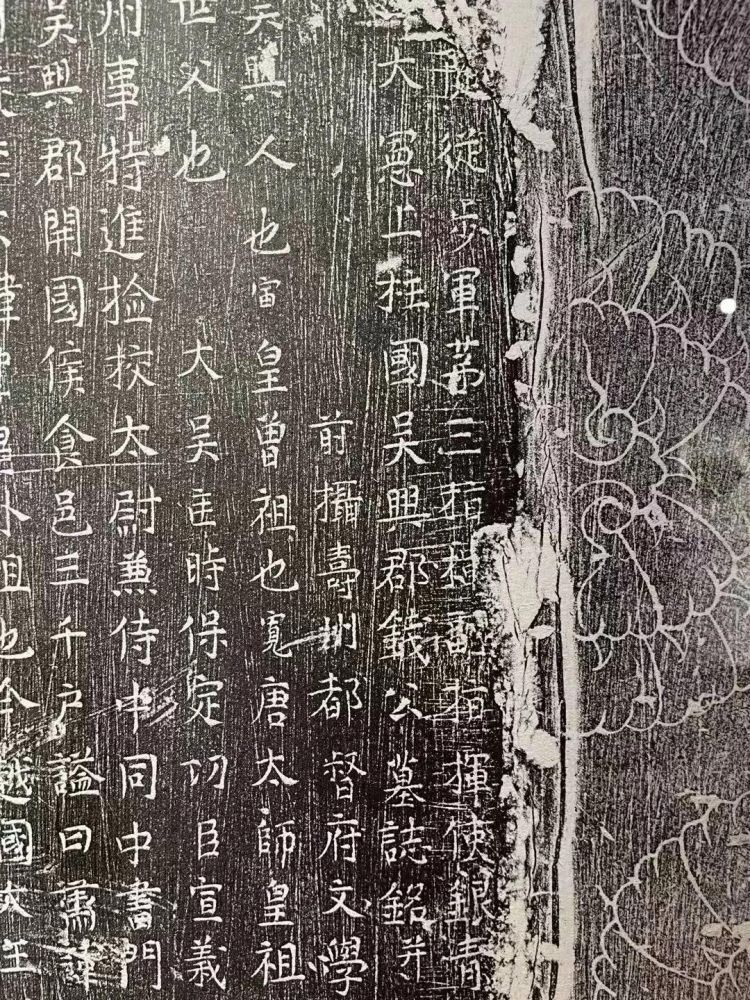 從步軍苐三指揮副指揮使銀青
大憲上柱國吳興郡錢公墓誌銘并
前攝壽州都督府文學
吳興人也甯皇曾祖也寬唐太師皇祖
世父也 大吳匡時保定功臣宣義
州事特進撿挍太尉兼侍中同中書門
吳興郡開國侯食邑三千戶謚曰
外祖也今越國太